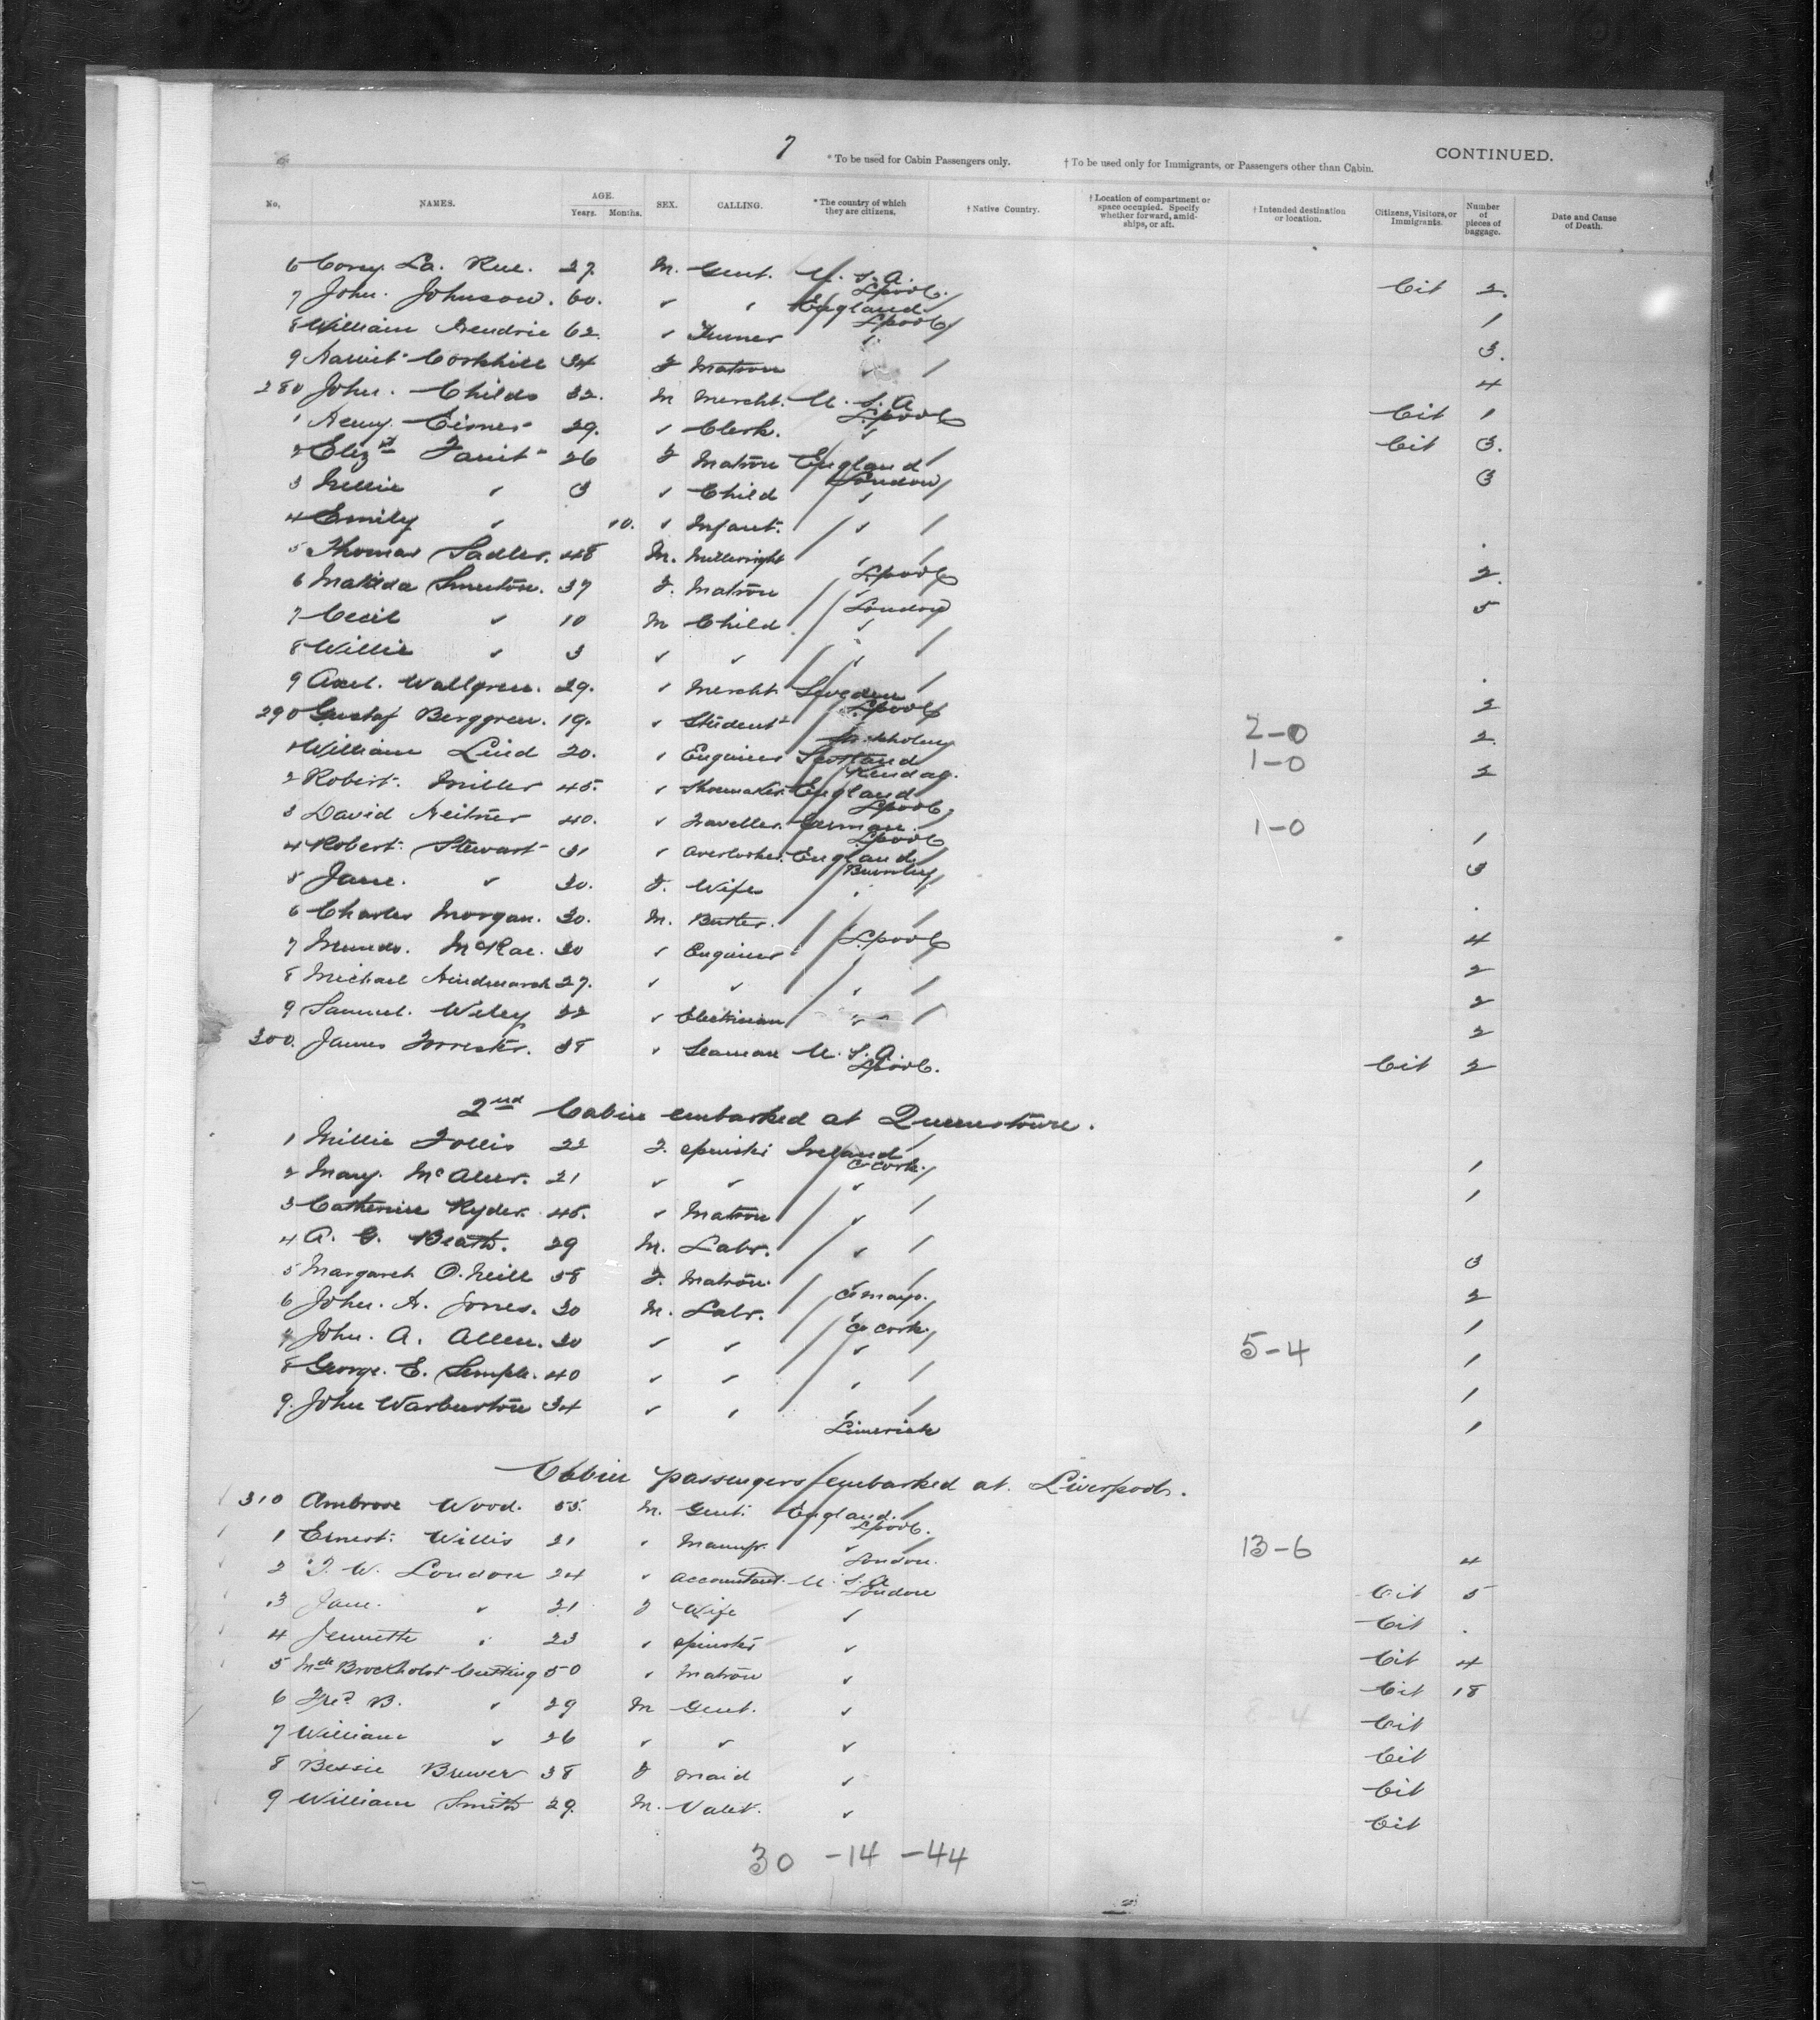 7
* To be used for Cabin Passengers only. † To be used only for Immigrants, or Passengers other than Cabin. CONTINUED.
No. NAMES. AGE. Years. Months. SEX. CALLING. * The country of which they are citizens. † Native Country. † Location of compartment or space occupied. Specify whether forward, amidships, or aft. † Intended destination or location. Citizens, Visitors, or Immigrants. Number of pieces of baggage. Date and Cause of Death.
6 Corey La. Rue. 27. M. Gent. U. S. A. L.pool. Cit 2.
7 John. Johnson. 60. ✓ ✓ England L.pool 1
8 William Hendrie 62. ✓ Turner ✓ 3.
9 Corkhill 34 F Matron ✓ 4
280 John. Childs 32. M Mercht. U. S. A L.pool Cit 1
1 Henry. 29. ✓ Clerk. ✓ Cit 3.
2 Elizth 26 F Matron England London 3
3 Nellie ✓ 3 ✓ Child ✓
4 Emily ✓ 10. ✓ Infant. ✓ .
5 Thomas Sadler. 48 M. Millwright ✓ L.pool 2.
6 Matilda Smeeton. 37 F. Matron ✓ London 5
7 Cecil ✓ 10 M Child ✓
8 Willie ✓ 3 ✓ ✓ ✓ .
9 Axel. Wallgren. 29. ✓ Mercht Sweden L.pool 2
290 Gustaf Berggren. 19. ✓ Student 2-0 2.
1 William Lind 20. ✓ Engineer Scotland 1-0 2
2 Robert. Miller 45. ✓ Shoemaker England L.pool
3 David 40. ✓ Traveller German. L.pool 1-0 1
4 Robert. Stewart 31 ✓ Overlooker. England Burnley 3
5 Jane. ✓ 30. F. Wife ✓ .
6 Charles Morgan. 30. M. Butler. ✓ L.pool 4
7 McRae. 30 ✓ Engineer ✓ 2
8 Michael Hindmarsh 27. ✓ ✓ ✓ 2
9 Samuel. Wiley 22 ✓ Electrician ✓ 2
300. James Forrester. 38 ✓ Seaman U. S. A. L.pool. Cit 2
2nd Cabin embarked at Queenstown.
1 Millie Follis 22 F. Spinster Ireland Co Cork. 1
2 Mary. McAleer. 21 ✓ ✓ ✓ 1
3 Catherine Ryder. 45. ✓ Matron ✓
4 A. G. Beath. 29 M. Labr. ✓ 3
5 Margaret O.Neill 38 F. Matron. ✓ Co Mayo. 2
6 John. H. Jones. 30 M. Labr. ✓ Co Cork. 1
7 John. A. Allen. 30 ✓ ✓ ✓ 5-4 1
8 George. E. Semple. 40 ✓ ✓ ✓ 1
9. John Warburton 34 ✓ ✓ ✓ Limerick 1
Cabin passengers embarked at Liverpool.
310 Ambrose Wood. 55. M. Gent. England. L.pool.
1 Ernest. Willis 21 ✓ Manufr. ✓ London. 13-6 4
2 T. W. London 24 ✓ Accountant. U. S. A London Cit 5
3 Jane. ✓ 21 F Wife ✓ Cit .
4 Jennette ✓ 23 ✓ Spinster ✓ Cit 4
5 Brockholst Cutting 50 ✓ Matron ✓ Cit 18
6 B. ✓ 29 M Gent. ✓ Cit
7 William ✓ 26 ✓ ✓ ✓ Cit
8 Bessie Brewer 38 F Maid ✓ Cit
9 William Smith 29. M. Valet. ✓ Cit
30 -14 -44